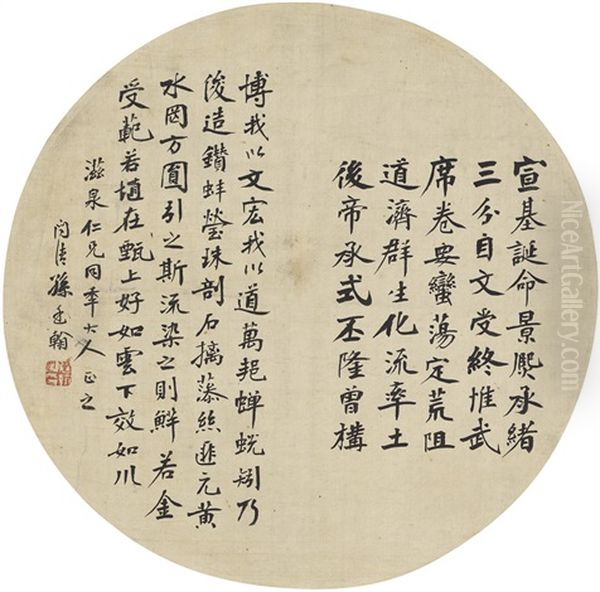 宣基誕命景熙承緒
三分自文受終惟武
席卷要蠻蕩定荒阻
道濟群生化流率土
後帝承式丕隆曾構
博我以文宏我以道萬蟬蛻矧乃
浚造鑽蚌瑩珠剖石摛藻絲匪元黃
水罔方圓引之斯流染之則鮮若金
受範若埴在甄上好如雲下效如川
滋泉仁兄同年大人正之
問清孫廷翰
NiceArtGallery.com